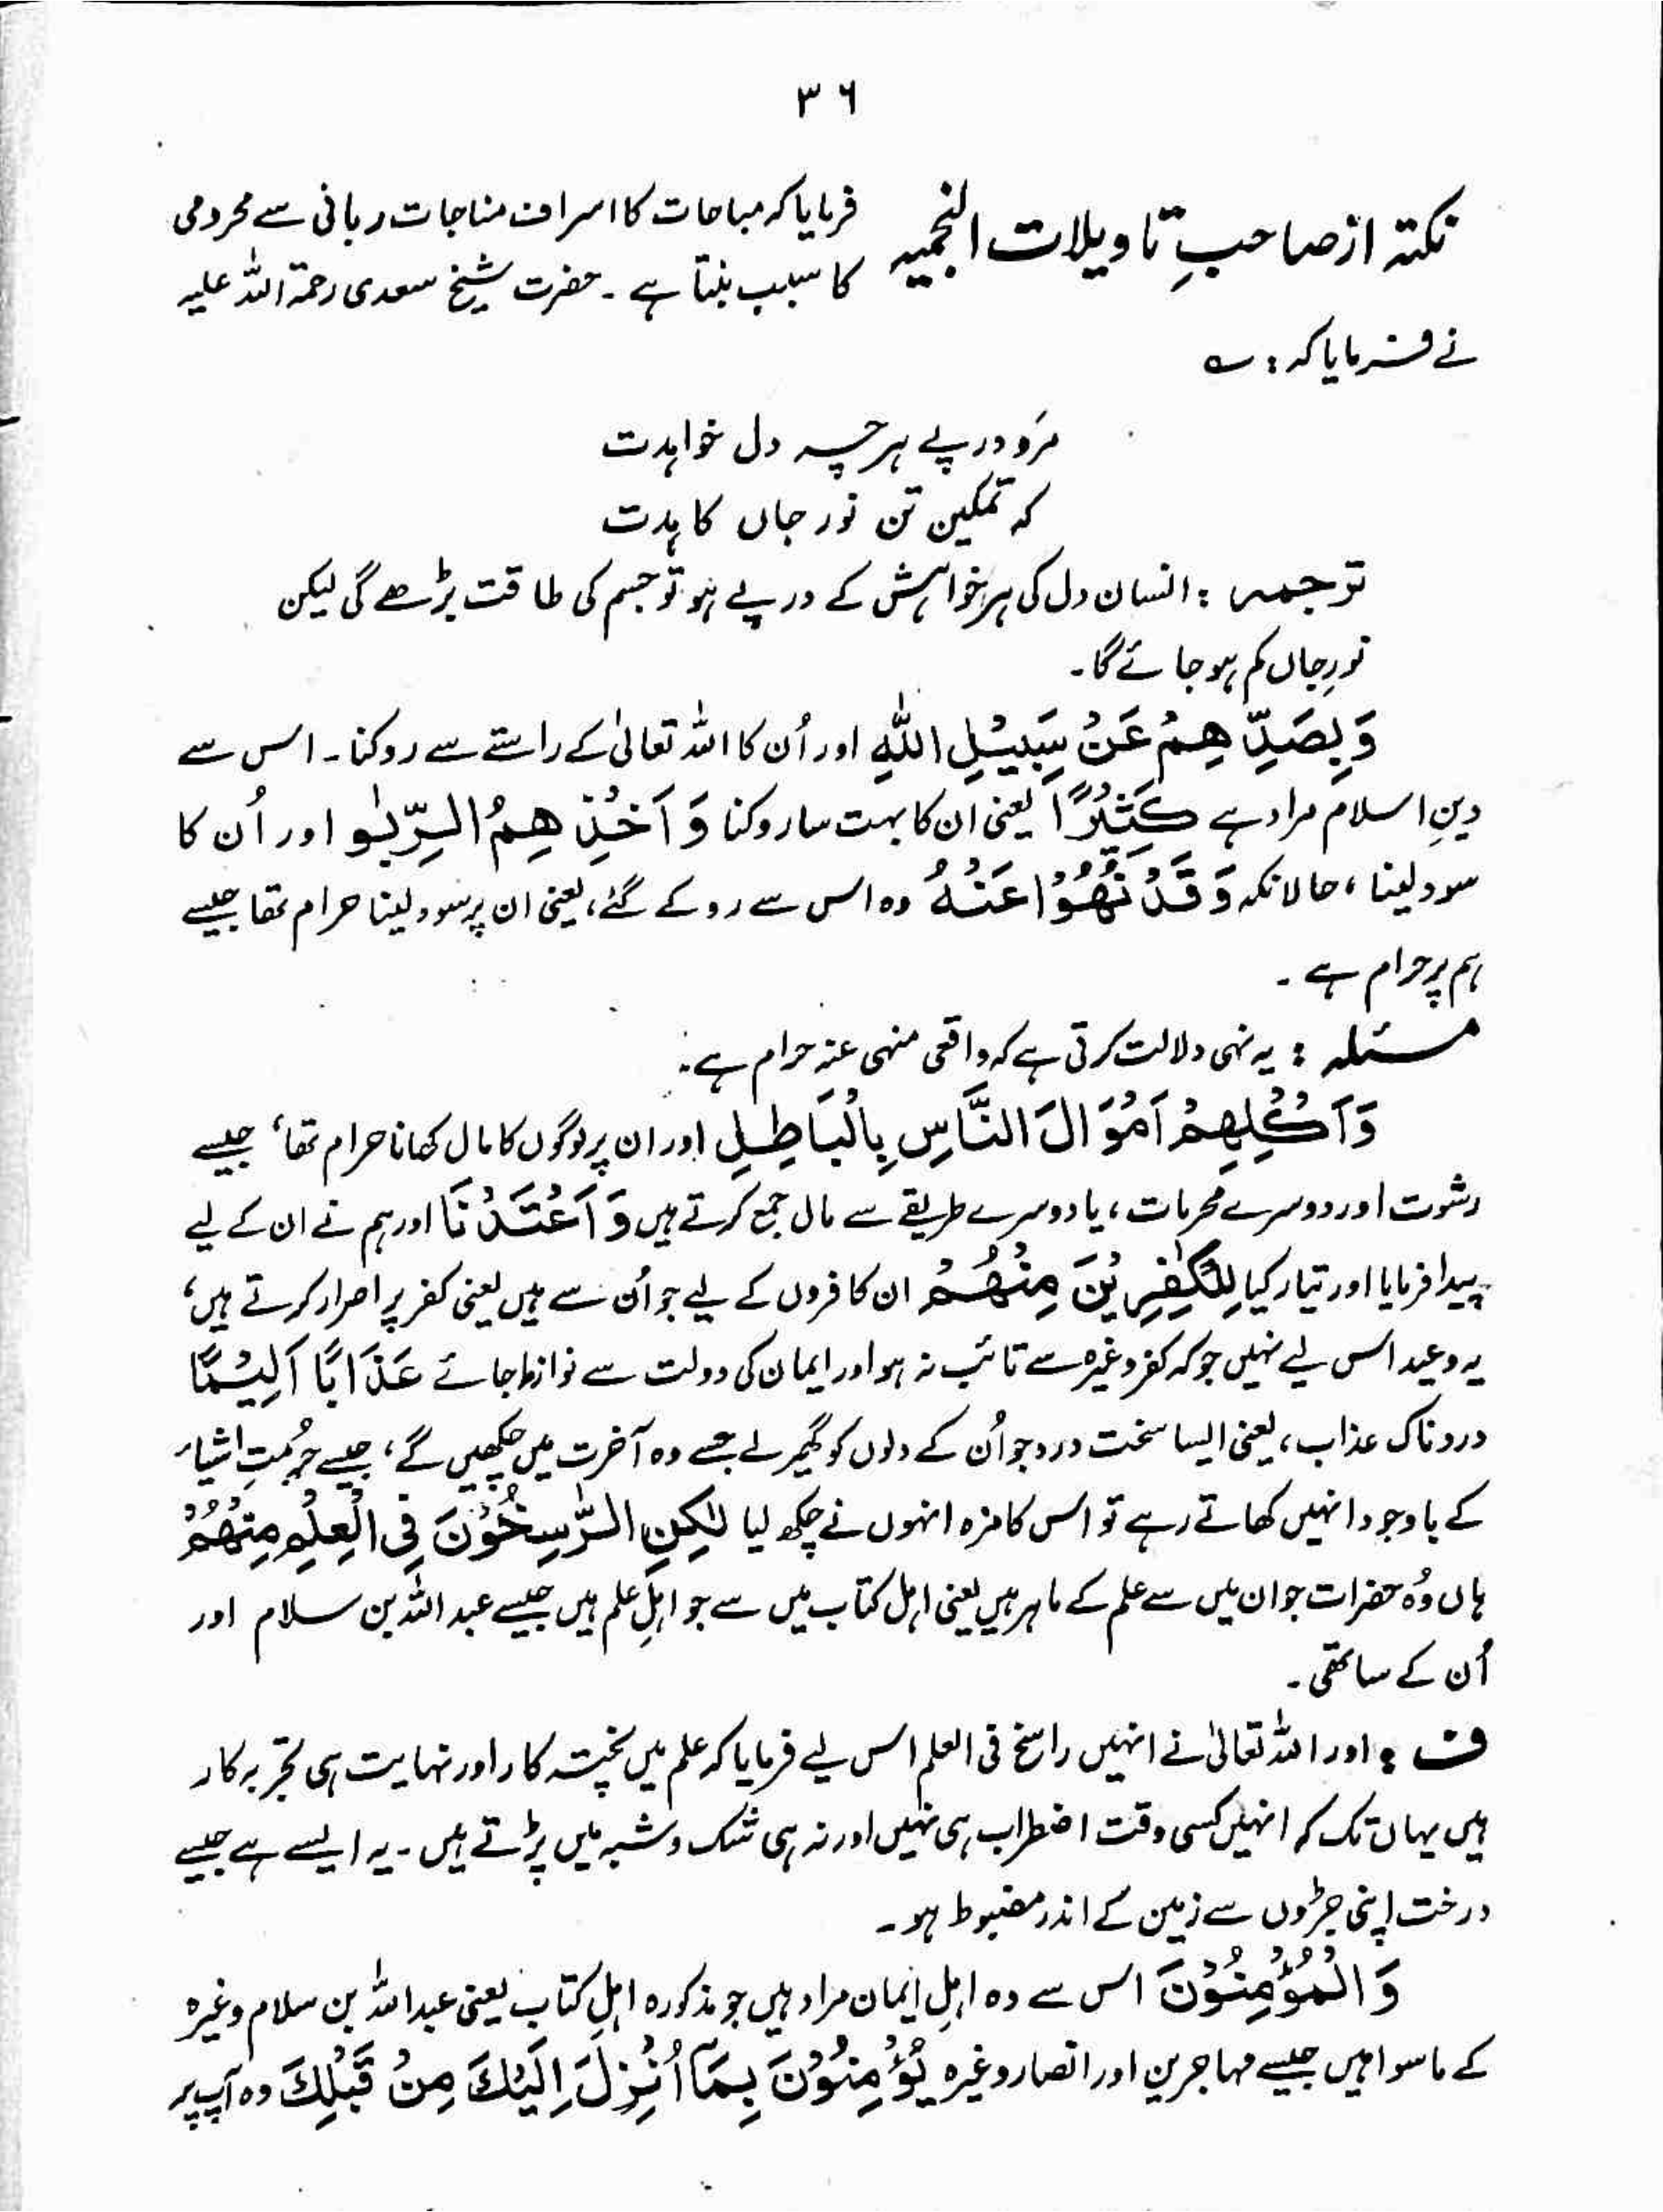 ۳۶
نکتہ از صاحبِ تاویلات النجمیہ فرمایا کہ مباحات کا اسراف مناجات ربانی سے محرومی
کا سبب بنتا ہے ۔ حضرت شیخ سعدی رحمۃ اللہ علیہ
نے فرمایا کہ : ؎
مَرَو در پے ہر چہ دل خواہدت
کہ تمکین تن نور جاں کاہدت
ترجمہ : انسان دل کی ہر خواہش کے در پے ہو تو جسم کی طاقت بڑھے گی لیکن
نورِ جاں کم ہو جائے گا۔
وَبِصَدِّهِمْ عَنْ سَبِيْلِ اللّٰهِ اور اُن کا اللہ تعالیٰ کے راستے سے روکنا۔ اس سے
دینِ اسلام مراد ہے كَثِيْرًا یعنی ان کا بہت سا روکنا وَّاَخْذِهِمُ الرِّبٰوا اور اُن کا
سود لینا ، حالانکہ وَقَدْ نُهُوْا عَنْهُ وہ اس سے روکے گئے، یعنی ان پر سود لینا حرام تھا جیسے
ہم پر حرام ہے ۔
مسئلہ : یہ نہی دلالت کرتی ہے کہ واقعی منہی عنہ حرام ہے۔
وَاَكْلِهِمْ اَمْوَالَ النَّاسِ بِالْبَاطِلِ اور ان پر لوگوں کا مال کھانا حرام تھا، جیسے
رشوت اور دوسرے محرمات ، یا دوسرے طریقے سے مال جمع کرتے ہیں وَاَعْتَدْنَا اور ہم نے ان کے لیے
پیدا فرمایا اور تیار کیا لِلْكٰفِرِيْنَ مِنْهُمْ ان کافروں کے لیے جو اُن سے ہیں یعنی کفر پر اصرار کرتے ہیں،
یہ وعید اس لیے نہیں جو کہ کفر وغیرہ سے تائب نہ ہو اور ایمان کی دولت سے نوازا جائے عَذَابًا اَلِيْمًا
دردناک عذاب، یعنی ایسا سخت درد جو اُن کے دلوں کو گھیر لے جسے وہ آخرت میں چکھیں گے ، جیسے حُرمتِ اشیاء
کے باوجود انہیں کھاتے رہے تو اس کا مزہ انہوں نے چکھ لیا لٰكِنِ الرّٰسِخُوْنَ فِى الْعِلْمِ مِنْهُمْ
ہاں وُہ حضرات جو ان میں سے علم کے ماہر ہیں یعنی اہل کتاب میں سے جو اہلِ علم ہیں جیسے عبد اللہ بن سلام اور
اُن کے ساتھی ۔
ف : اور اللہ تعالیٰ نے انہیں راسخ فی العلم اس لیے فرمایا کہ علم میں پختہ کار اور نہایت ہی تجربہ کار
ہیں یہاں تک کہ انہیں کسی وقت اضطراب ہی نہیں اور نہ ہی شک و شبہ میں پڑتے ہیں ۔ یہ ایسے ہے جیسے
درخت اپنی جڑوں سے زمین کے اندر مضبوط ہو ۔
وَالْمُؤْمِنُوْنَ اس سے وہ اہلِ ایمان مراد ہیں جو مذکورہ اہلِ کتاب یعنی عبد اللہ بن سلام وغیرہ
کے ماسوا ہیں جیسے مہاجرین اور انصار وغیرہ يُؤْمِنُوْنَ بِمَآ اُنْزِلَ اِلَيْكَ مِنْ قَبْلِكَ وہ آپ پر